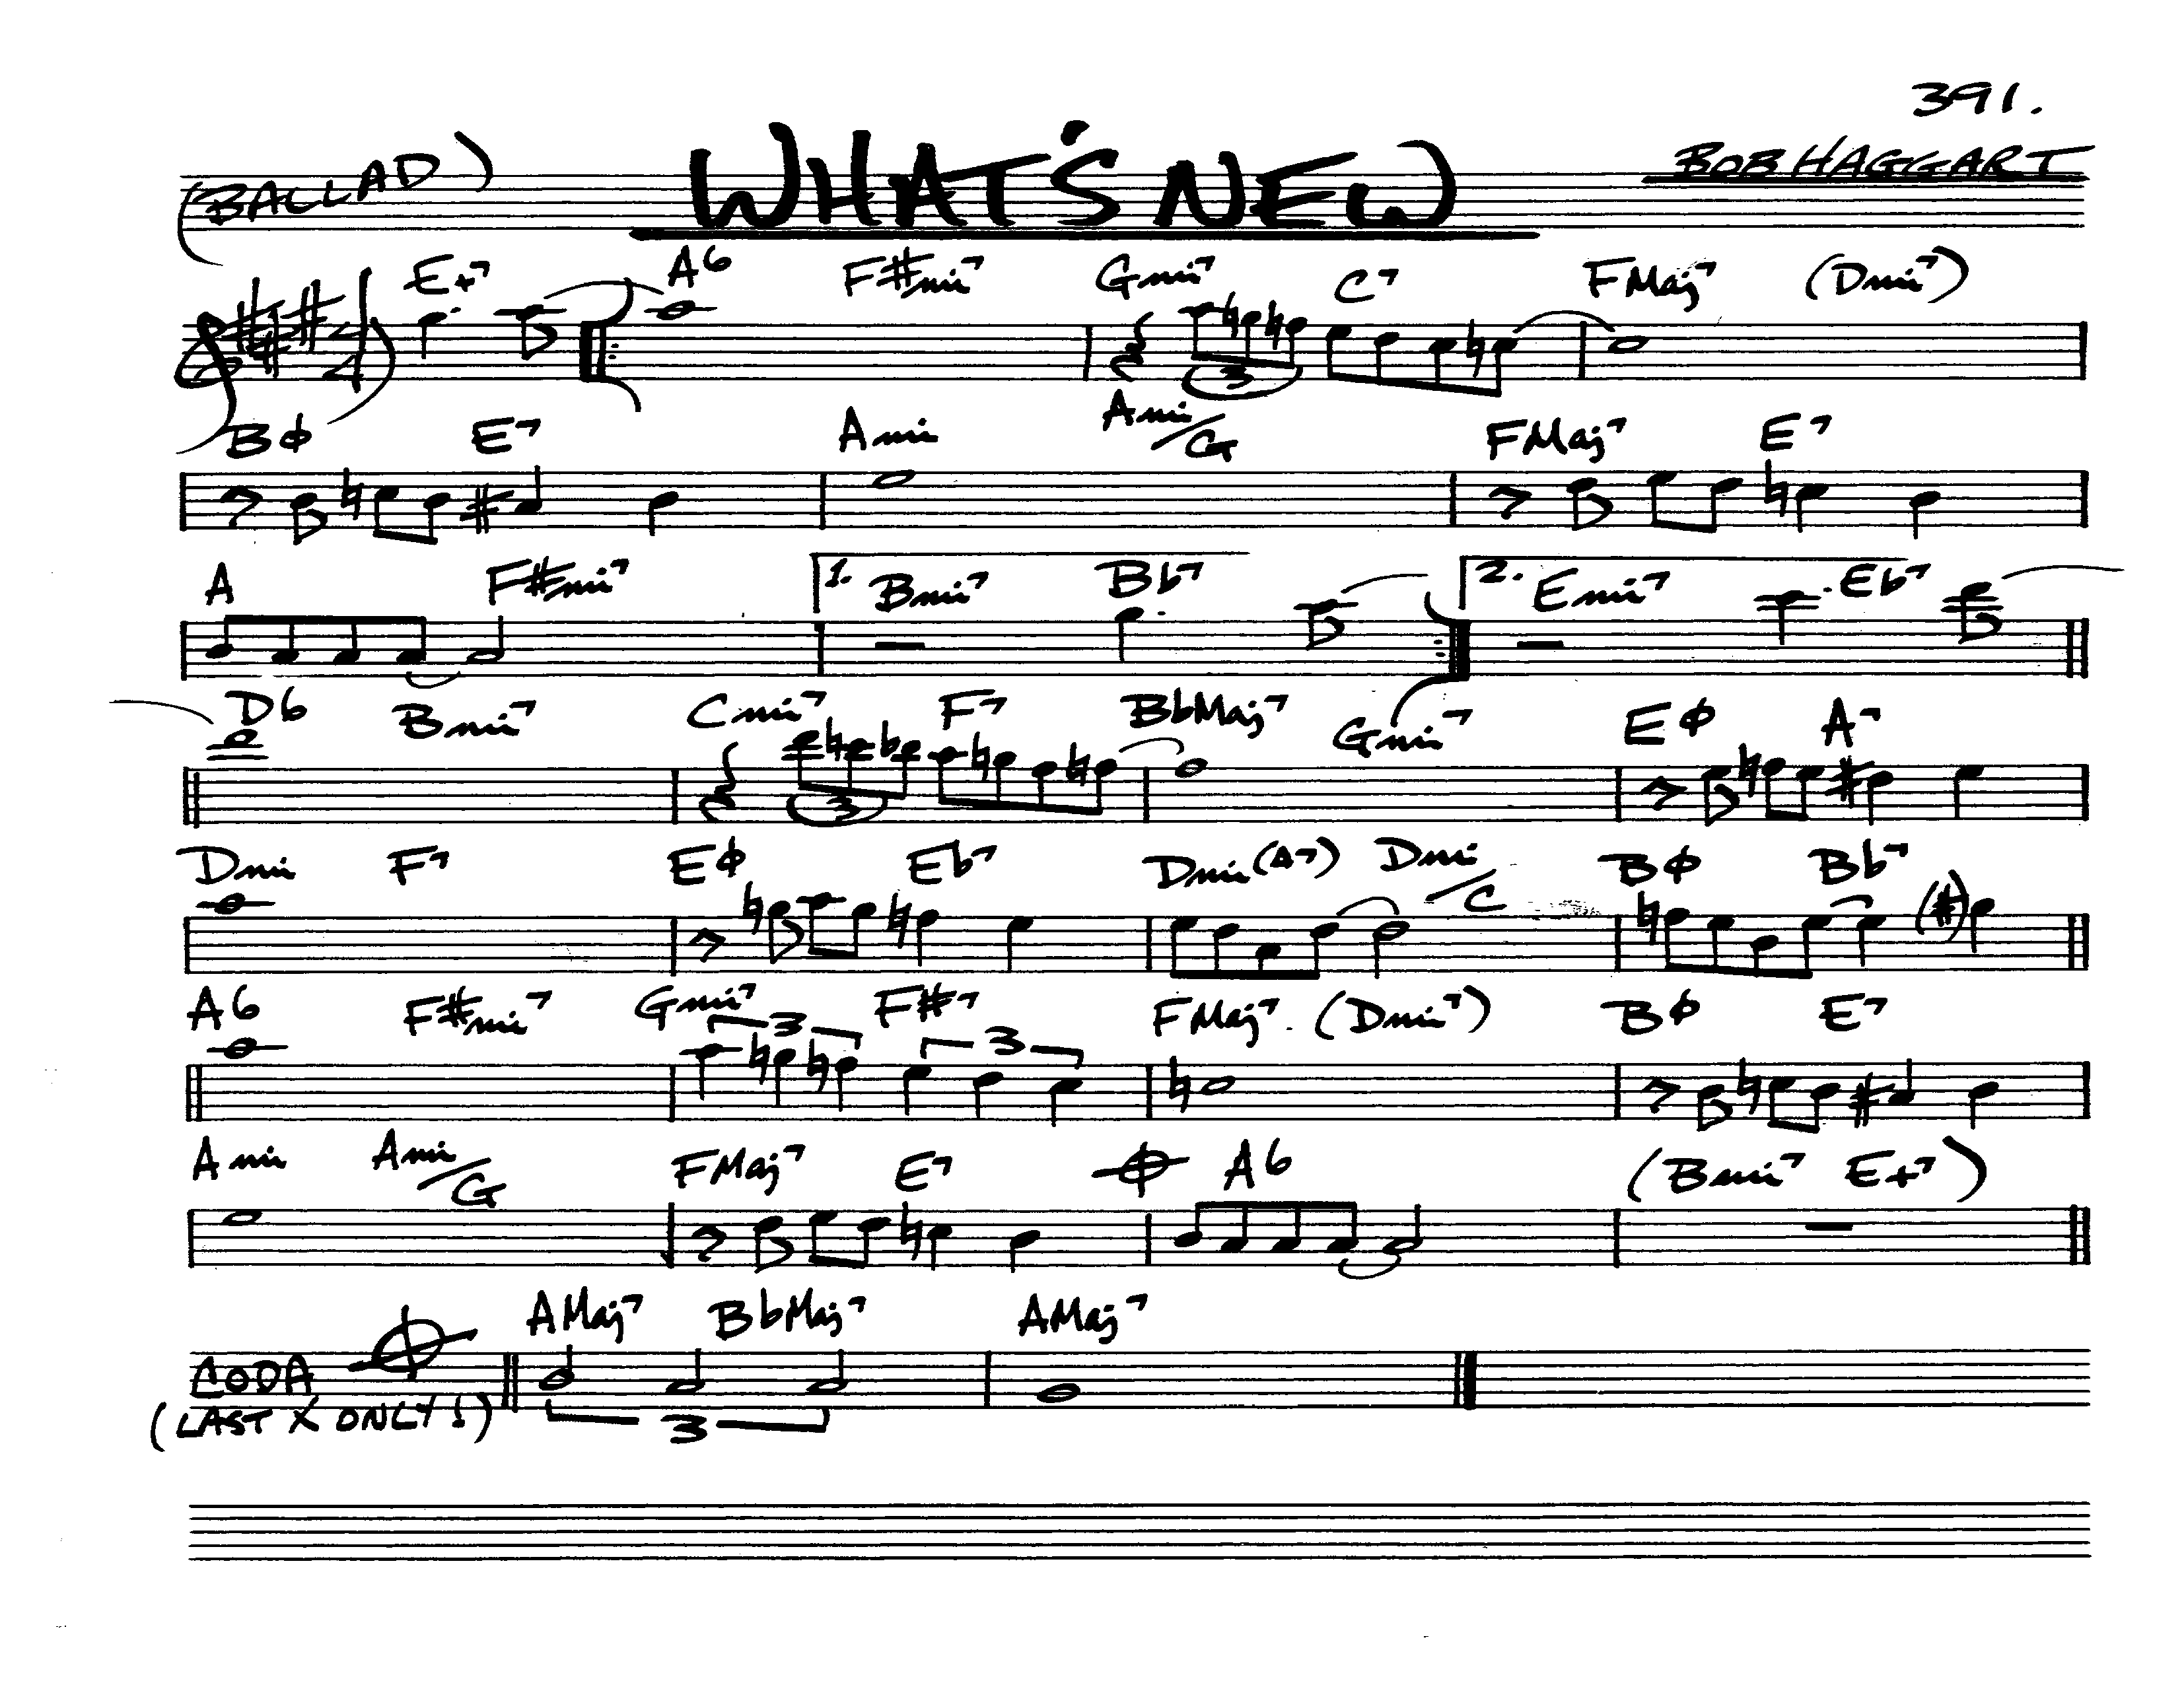 391.
(BALLAD) WHAT'S NEW BOB HAGGART
E+7 A6 F#mi7 Gmi7 C7 FMaj7 (Dmi7)
4
3
Bφ E7 Ami Ami/G FMaj7 E7
A F#mi7 1. Bmi7 Bb7 2. Emi7 Eb7
D6 Bmi7 Cmi7 F7 BbMaj7 Gmi7 Eφ A7
3
Dmi F7 Eφ Eb7 Dmi (A7) Dmi/C Bφ Bb7
(#)
A6 F#mi7 Gmi7 F#7 FMaj7 (Dmi7) Bφ E7
3 3
Ami Ami/G FMaj7 E7 A6 (Bmi7 E+7)
AMaj7 BbMaj7 AMaj7
CODA
(LAST X ONLY!)
3